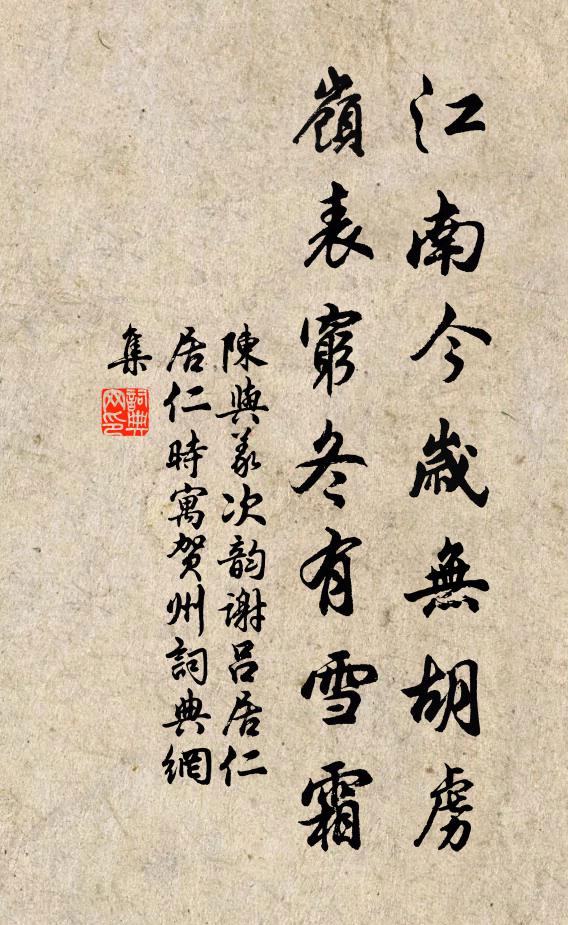 江南今歲無胡虜
嶺表窮冬有雪霜
陳與義次韵謝呂居仁
居仁時寓賀州詞典網
集
詞典
网印